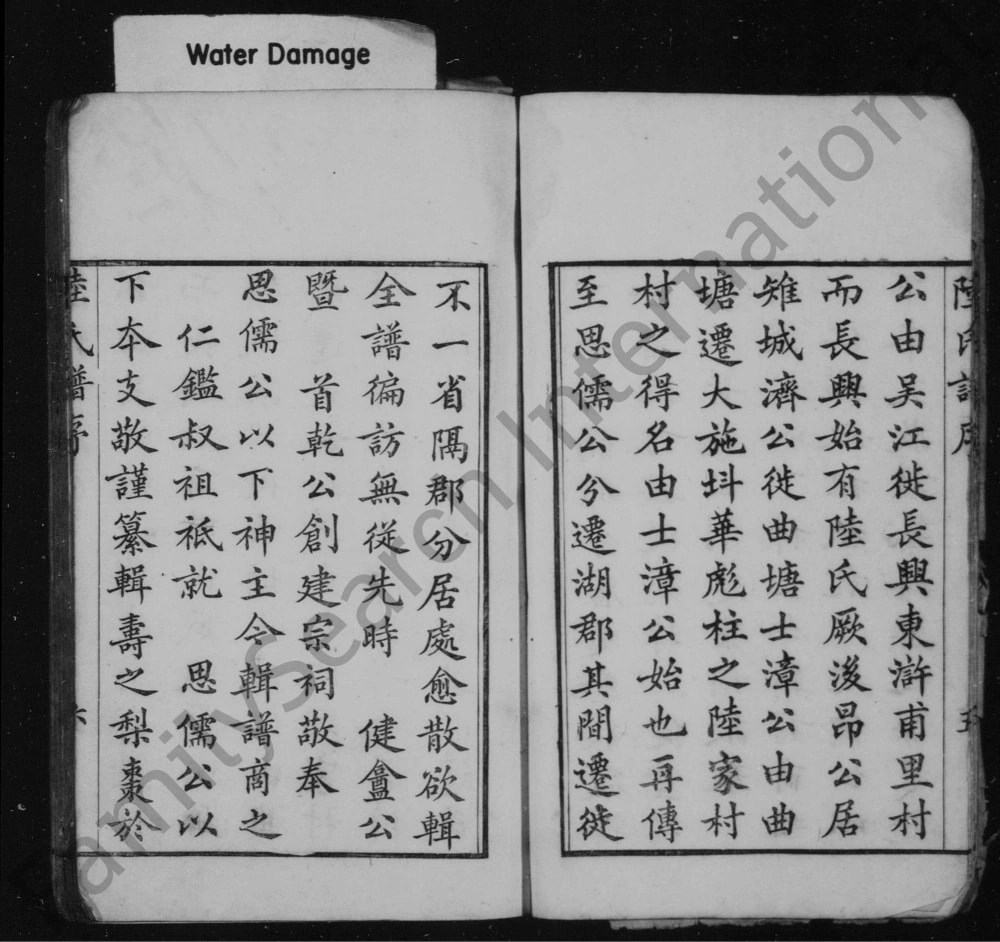 Water Damage
陸氏譜序
五
公由吴江徙長興東滸甫里村
而長興始有陸氏厥後昂公居
雉城濟公徙曲塘士漳公由曲
塘遷大施㘰華彪柱之陸家村
村之得名由士漳公始也再傳
至思儒公分遷湖郡其間遷徙
不一省隅郡分居處愈散欲輯
全譜徧訪無從先時 健盦公
暨 首乾公創建宗祠敬奉
思儒公以下神主今輯譜商之
仁鑑叔祖祗就 思儒公以
下本支敬謹纂輯壽之梨棗於
陸氏譜序
六
FamilySearch International